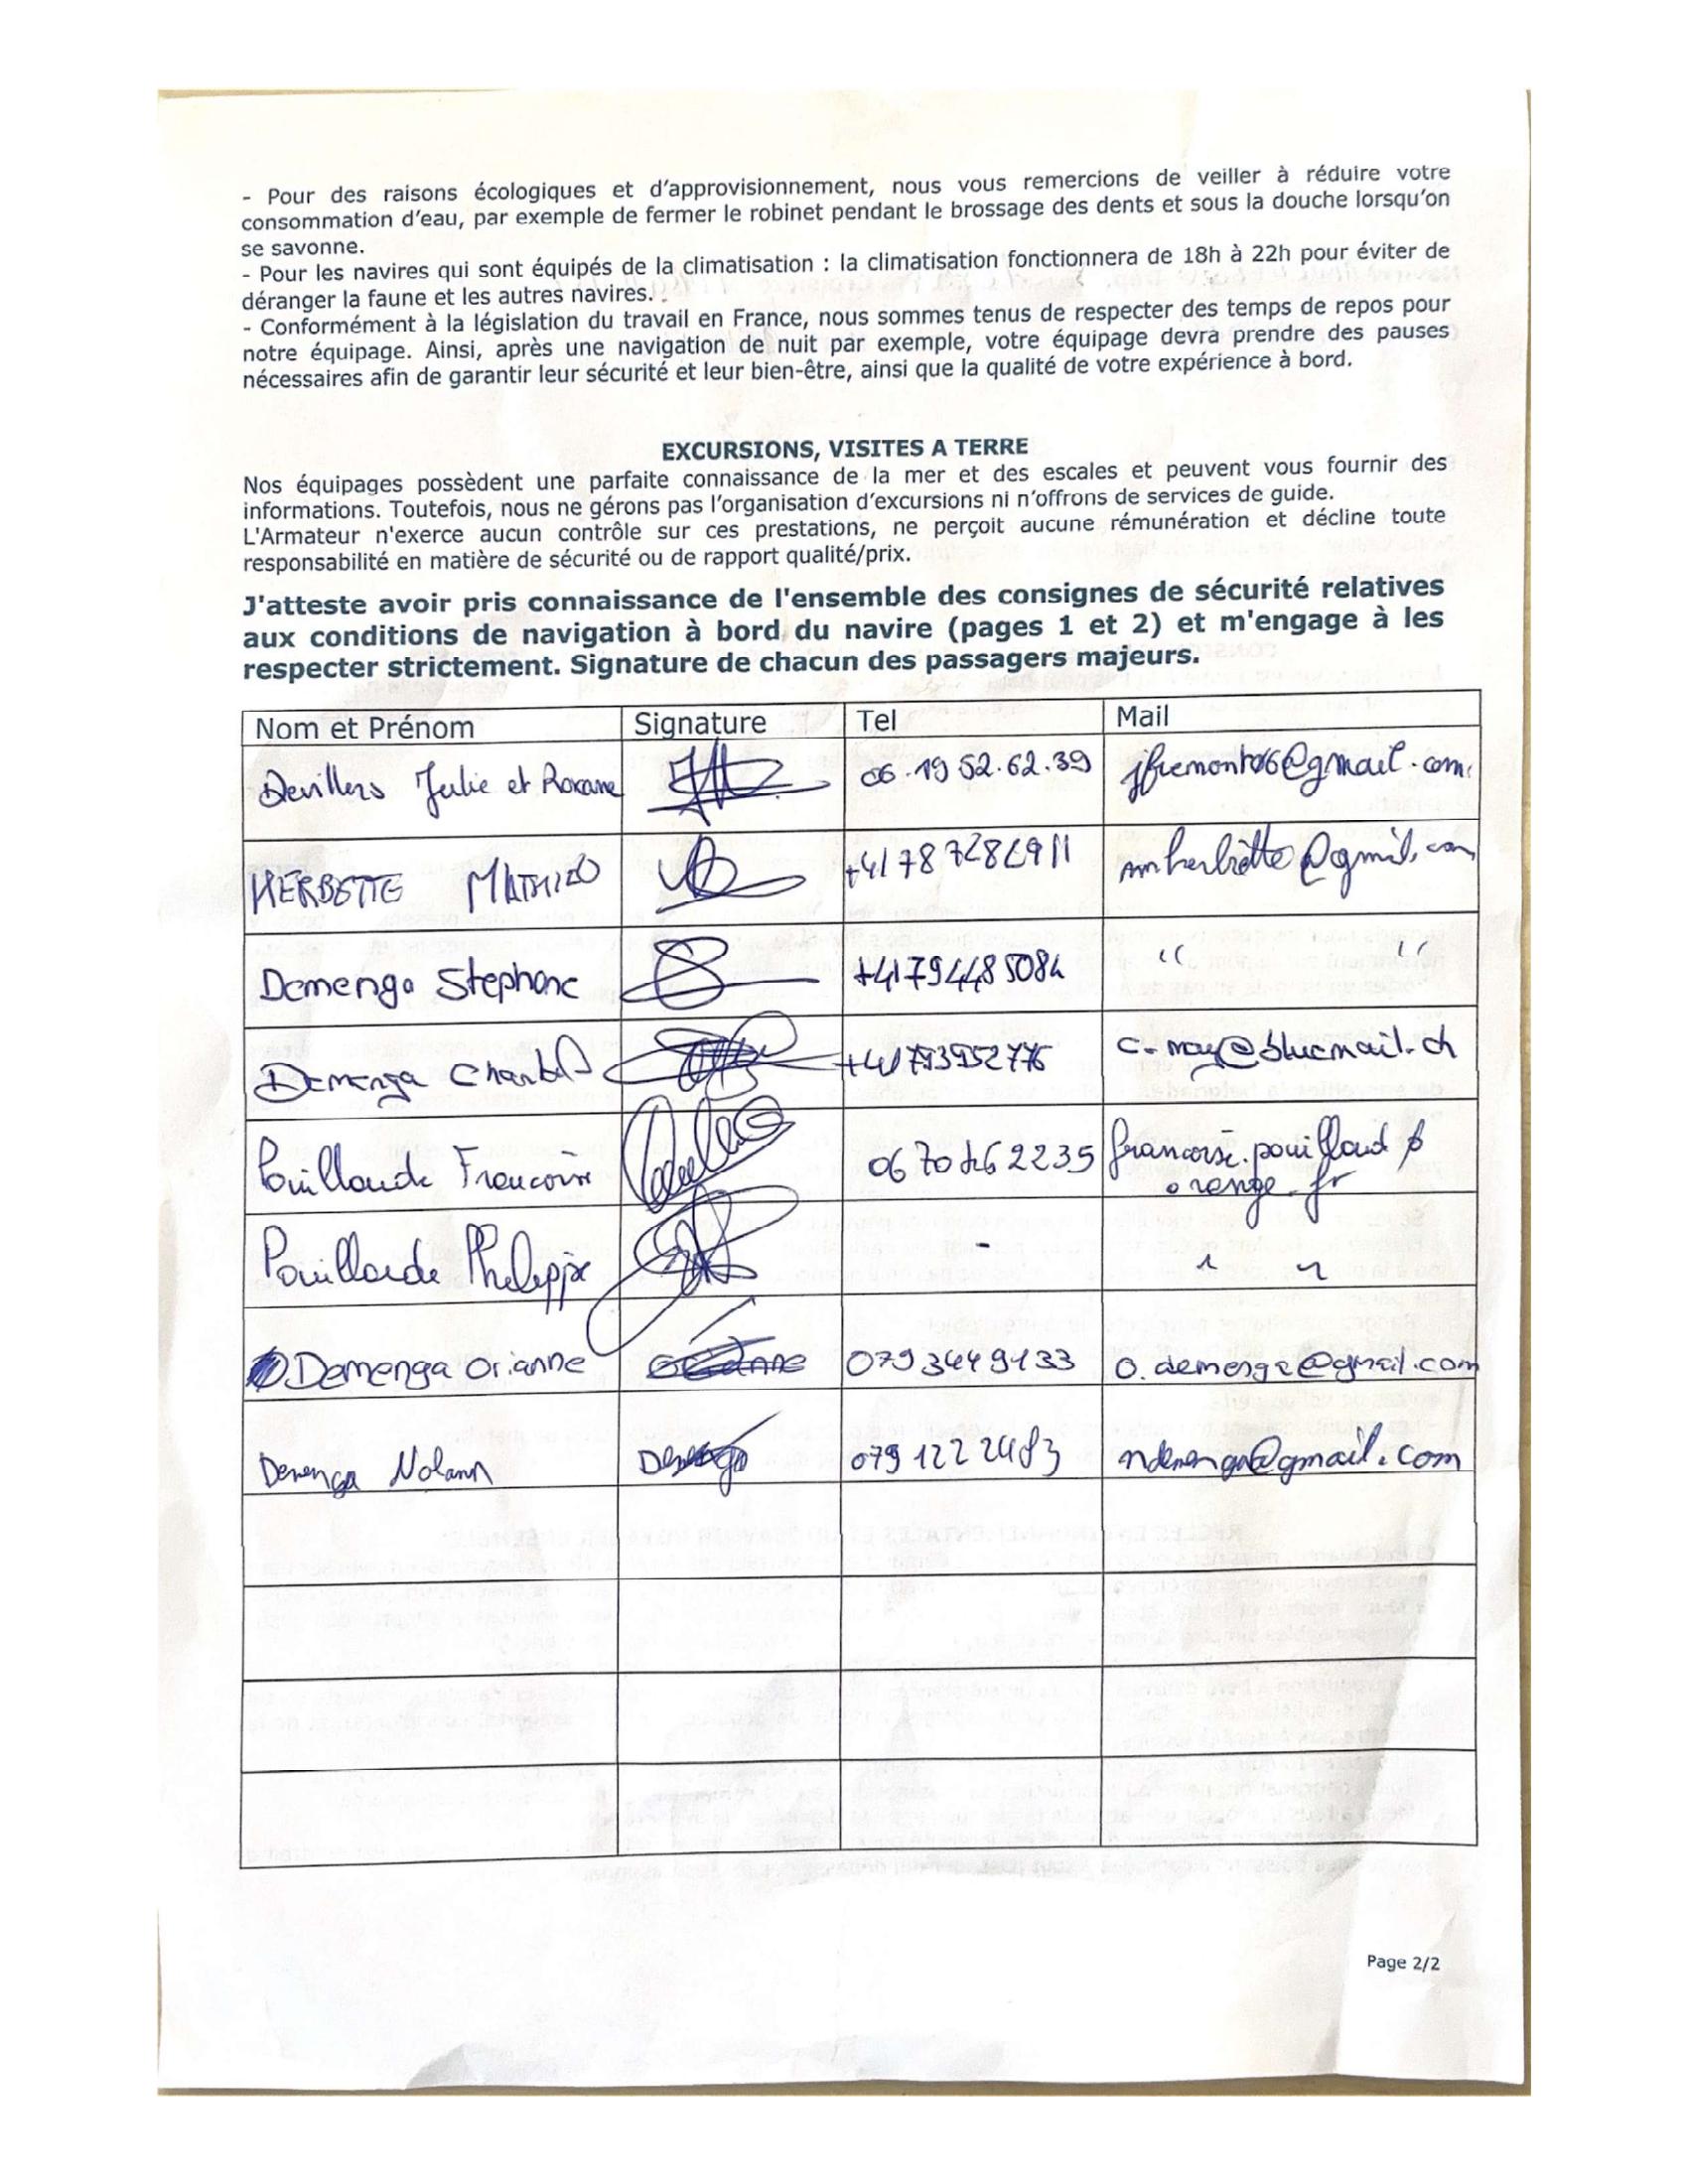 - Pour des raisons écologiques et d'approvisionnement, nous vous remercions de veiller à réduire votre
consommation d'eau, par exemple de fermer le robinet pendant le brossage des dents et sous la douche lorsqu'on
se savonne.
- Pour les navires qui sont équipés de la climatisation : la climatisation fonctionnera de 18h à 22h pour éviter de
déranger la faune et les autres navires.
- Conformément à la législation du travail en France, nous sommes tenus de respecter des temps de repos pour
notre équipage. Ainsi, après une navigation de nuit par exemple, votre équipage devra prendre des pauses
nécessaires afin de garantir leur sécurité et leur bien-être, ainsi que la qualité de votre expérience à bord.
EXCURSIONS, VISITES A TERRE
Nos équipages possèdent une parfaite connaissance de la mer et des escales et peuvent vous fournir des
informations. Toutefois, nous ne gérons pas l'organisation d'excursions ni n'offrons de services de guide.
L'Armateur n'exerce aucun contrôle sur ces prestations, ne perçoit aucune rémunération et décline toute
responsabilité en matière de sécurité ou de rapport qualité/prix.
J'atteste avoir pris connaissance de l'ensemble des consignes de sécurité relatives
aux conditions de navigation à bord du navire (pages 1 et 2) et m'engage à les
respecter strictement. Signature de chacun des passagers majeurs.
Nom et Prénom Signature Tel Mail
Devillers Julie et Roxane 06.19 52.62.39 jfremont06@gmail.com
HERBETTE MATHILD +41787282911 mherbette@gmail.com
Demenga Stephane +41794485084 " "
Demenga Chantal +41793952776 c-may@bluemail.ch
Pouillaude Francoise 06 70 2235 francoise.pouillaud
orange.fr
Pouillaude Philippe - " "
Demenga Orianne 0793449133 o.demenga@gmail.com
Demenga Nolann Demenga 079 122 2483 ndemenga@gmail.com
Page 2/2